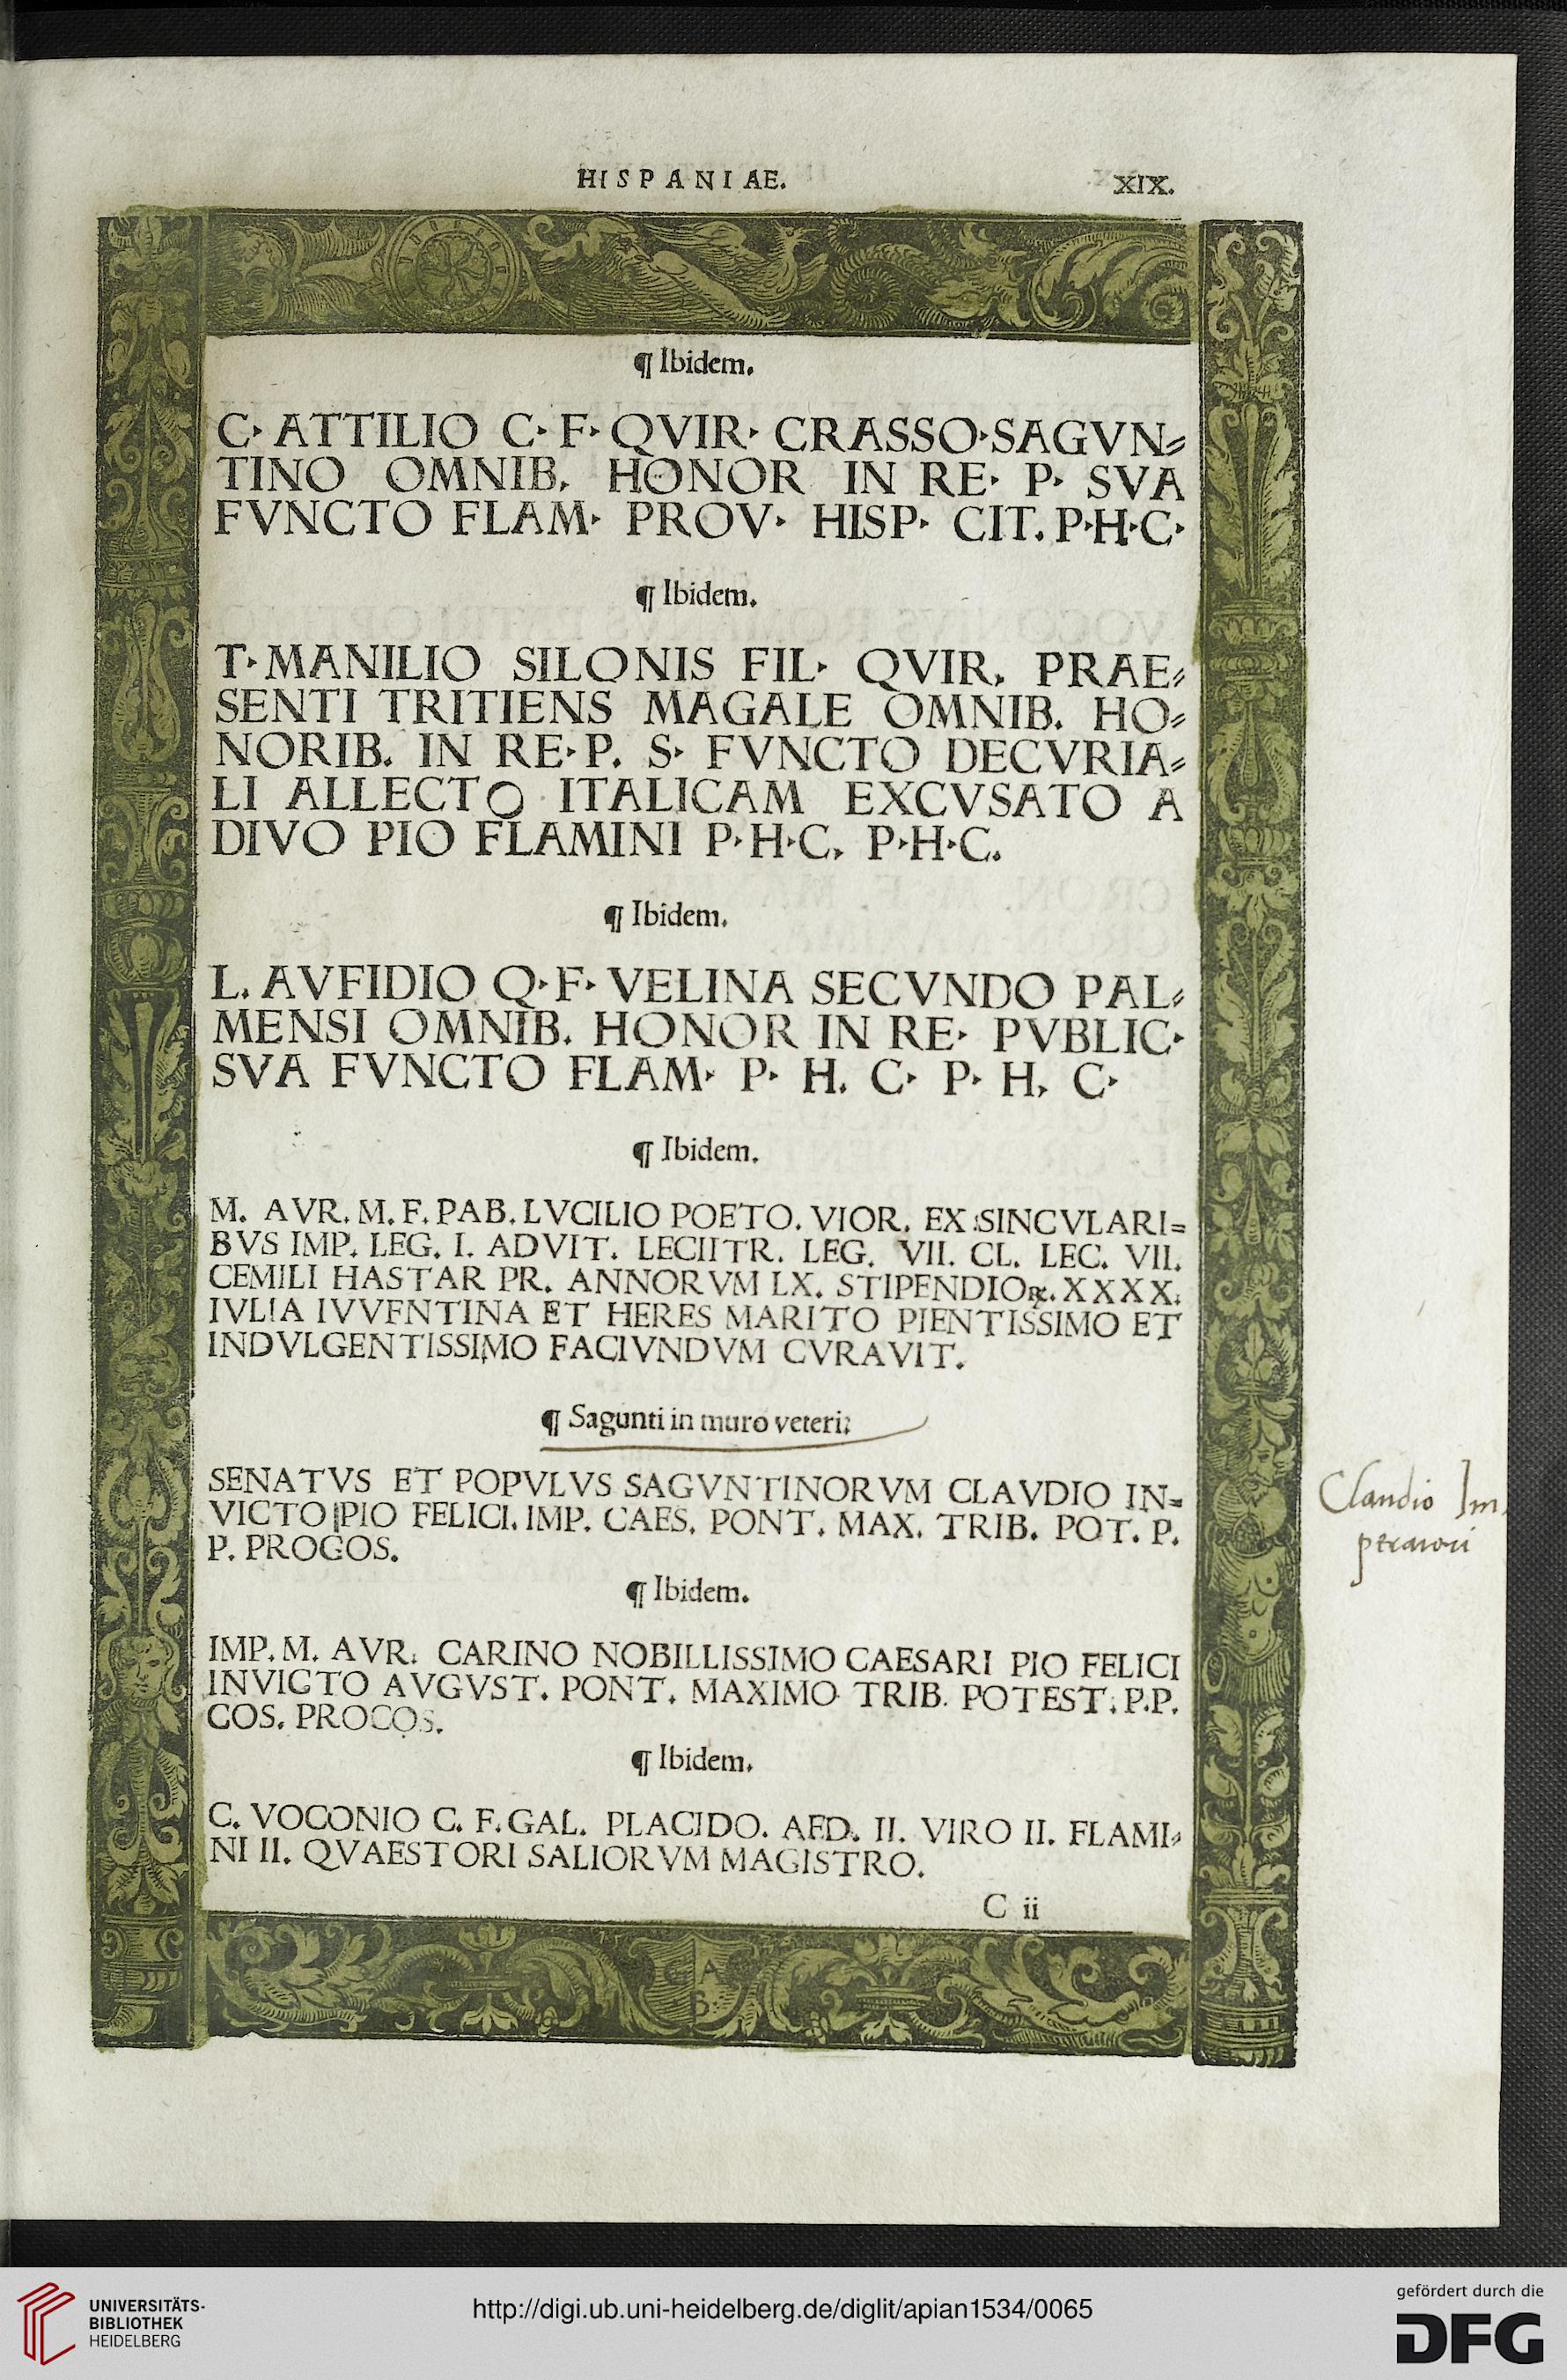 HISPANIAE. XIX.
¶ Ibidem.
C‧ ATTILIO C‧ F‧ QVIR‧ CRASSO‧SAGVN⸗
TINO OMNIB. HONOR IN RE‧ P‧ SVA
FVNCTO FLAM‧ PROV‧ HISP‧ CIT. P‧H‧C‧
¶ Ibidem.
T‧ MANILIO SILONIS FIL‧ QVIR. PRAE⸗
SENTI TRITIENS MAGALE OMNIB. HO⸗
NORIB. IN RE‧P. S‧ FVNCTO DECVRIA⸗
LI ALLECTO ITALICAM EXCVSATO A
DIVO PIO FLAMINI P‧H‧C. P‧H‧C.
¶ Ibidem.
L. AVFIDIO Q‧F‧ VELINA SECVNDO PAL⸗
MENSI OMNIB. HONOR IN RE‧ PVBLIC‧
SVA FVNCTO FLAM‧ P‧ H. C‧ P‧ H. C‧
¶ Ibidem.
M. AVR. M. F. PAB. LVCILIO POETO. VIOR. EX SINCVLARI=
BVS IMP. LEG. I. ADVIT. LECIITR. LEG. VII. CL. LEC. VII.
CEMILI HASTAR PR. ANNORVM LX. STIPENDIOꝝ. XXXX.
IVLIA IVVFNTINA ET HERES MARITO PIENTISSIMO ET
INDVLGENTISSIMO FACIVNDVM CVRAVIT.
¶ Sagunti in muro veteri:
SENATVS ET POPVLVS SAGVNTINORVM CLAVDIO IN=
VICTO PIO FELICI. IMP. CAES. PONT. MAX. TRIB. POT. P.
P. PROGOS.
Claudio Im
peratori
¶ Ibidem.
IMP. M. AVR. CARINO NOBILLISSIMO CAESARI PIO FELICI
INVICTO AVGVST. PONT. MAXIMO TRIB. POTEST. P.P.
COS. PROCOS.
¶ Ibidem.
C. VOCONIO C. F. GAL. PLACIDO. AED. II. VIRO II. FLAMI⸗
NI II. QVAESTORI SALIORVM MAGISTRO.
C ii
A
B
UNIVERSITÄTS-
BIBLIOTHEK
HEIDELBERG
http://digi.ub.uni-heidelberg.de/diglit/apian1534/0065
gefördert durch die
DFG